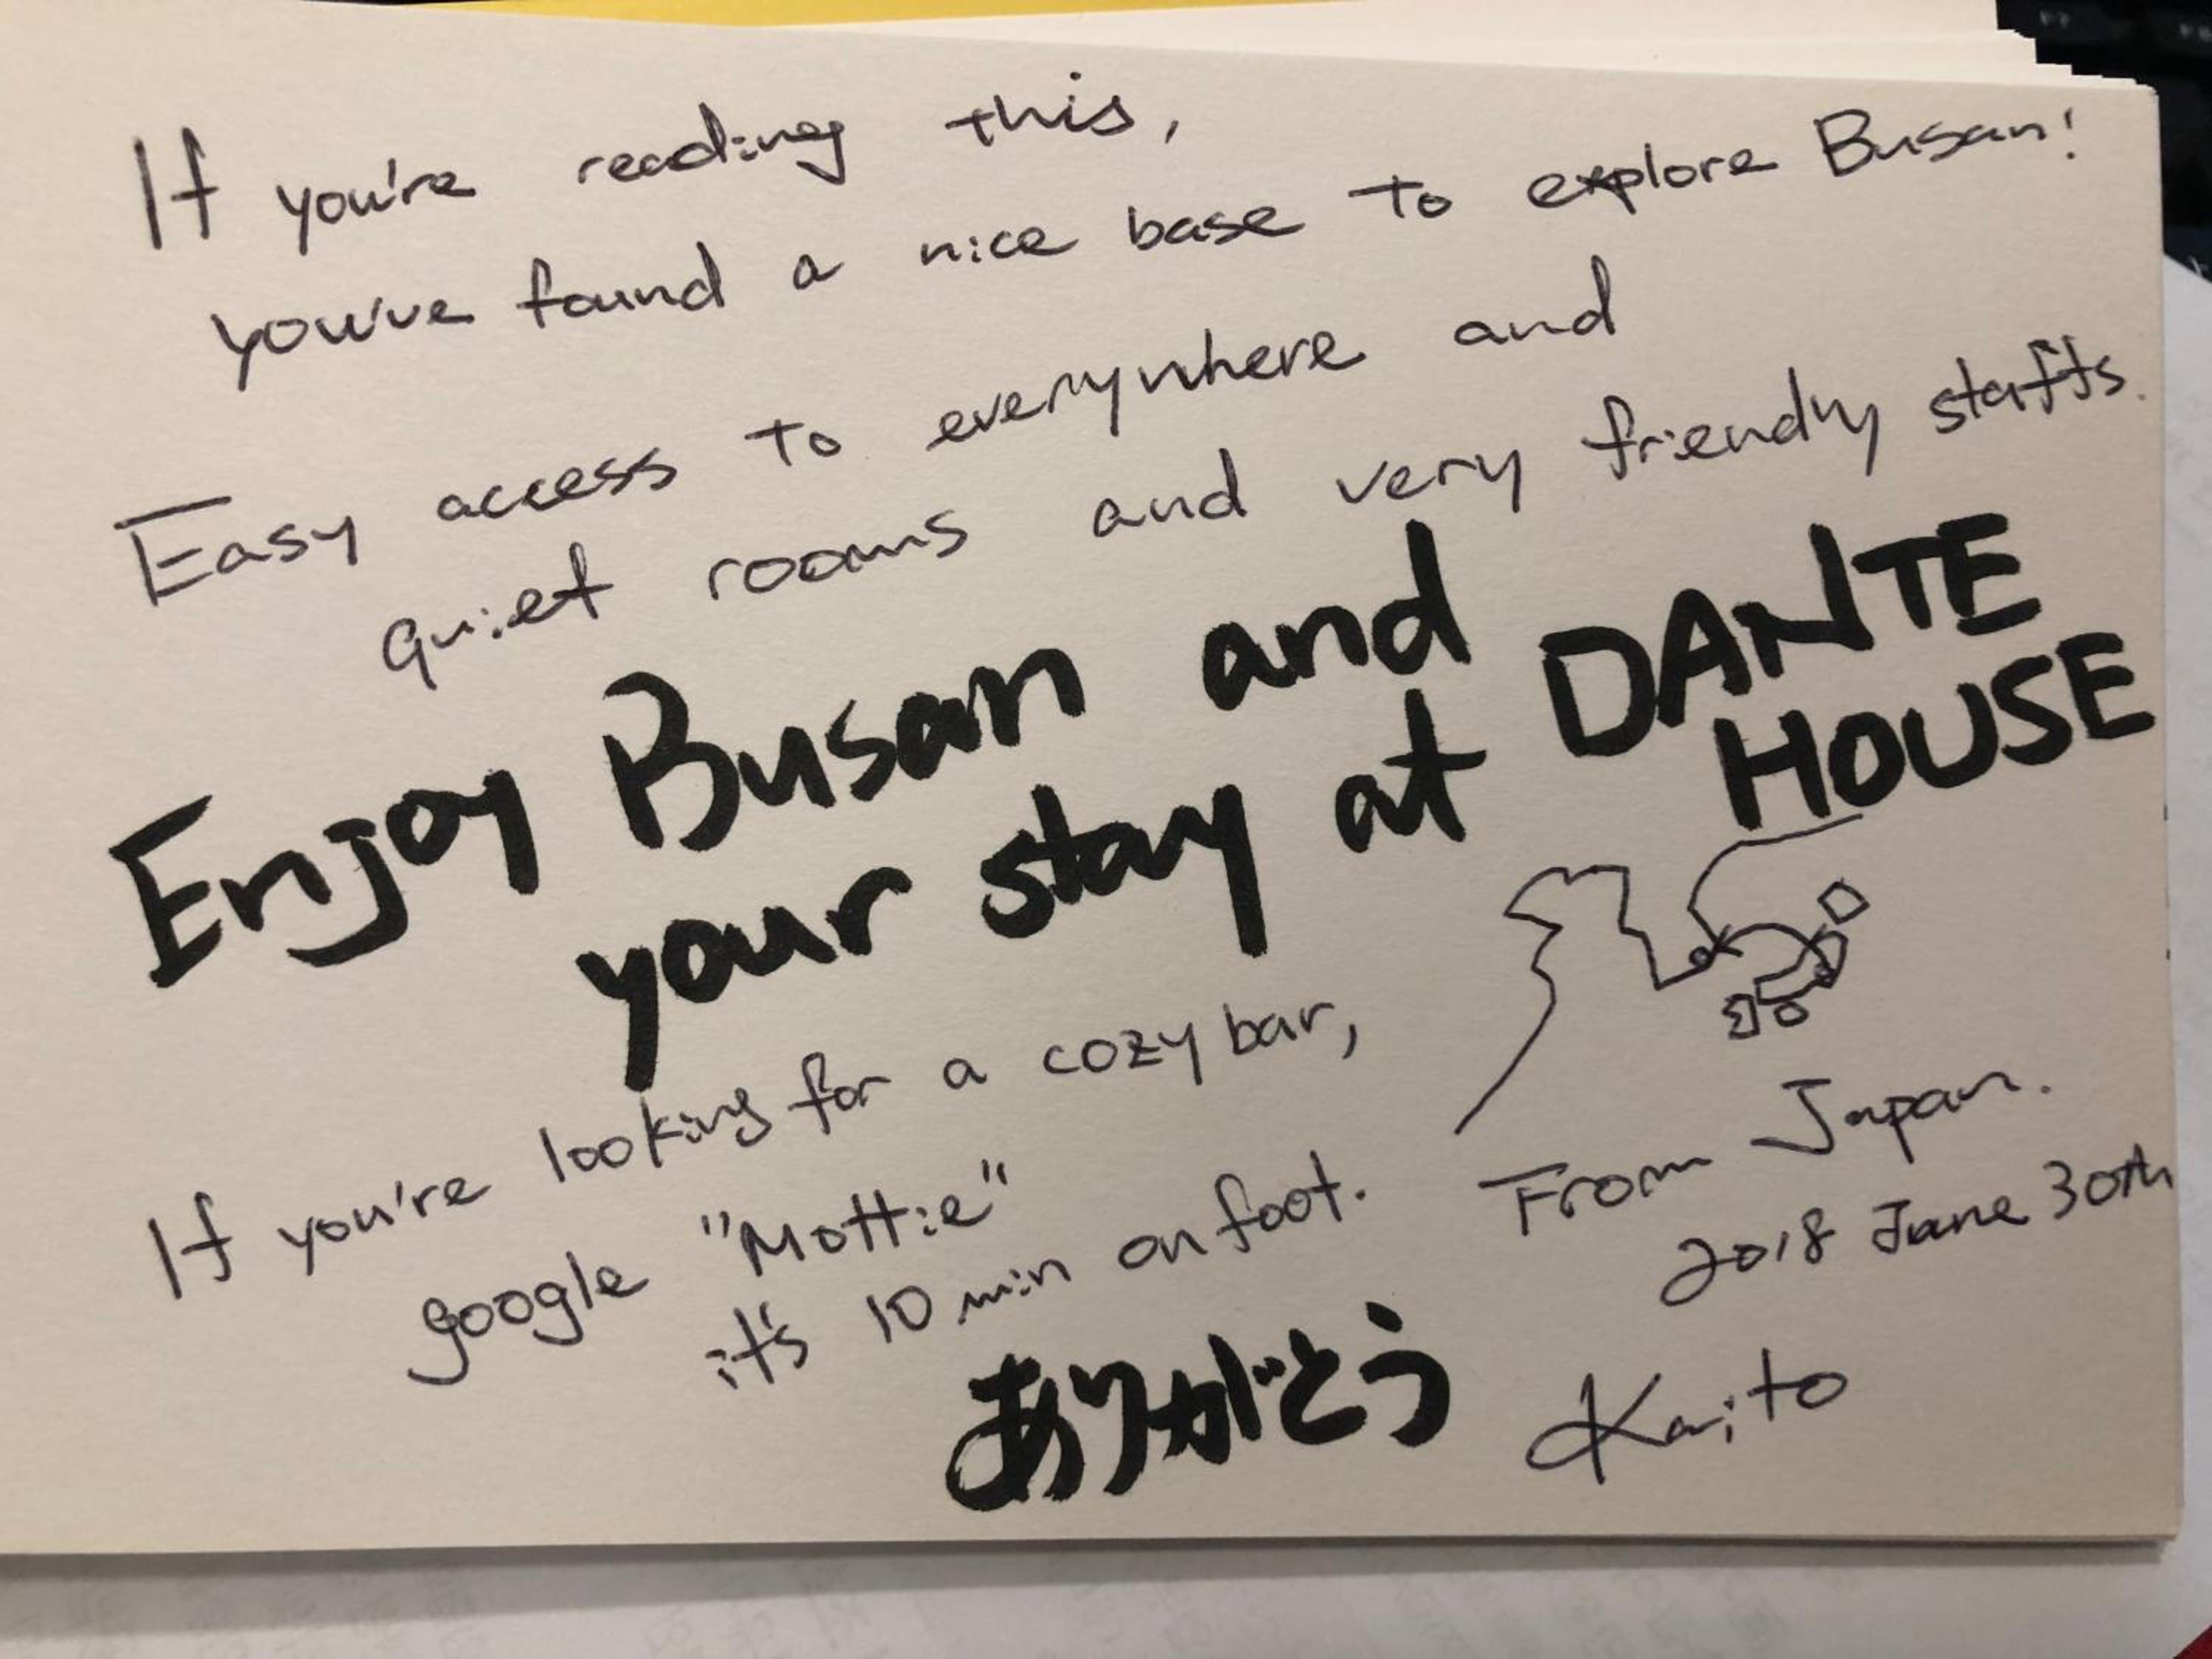 If you're reading this,
you've found a nice base to explore Busan!
Easy access to everywhere and
quiet rooms and very friendly staffs.
Enjoy Busan and
your stay at DANTE
HOUSE
If you're looking for a cozy bar,
google "Mottie"
it's 10 min on foot.
From Japan.
2018 June 30th
ありがとう
Kaito